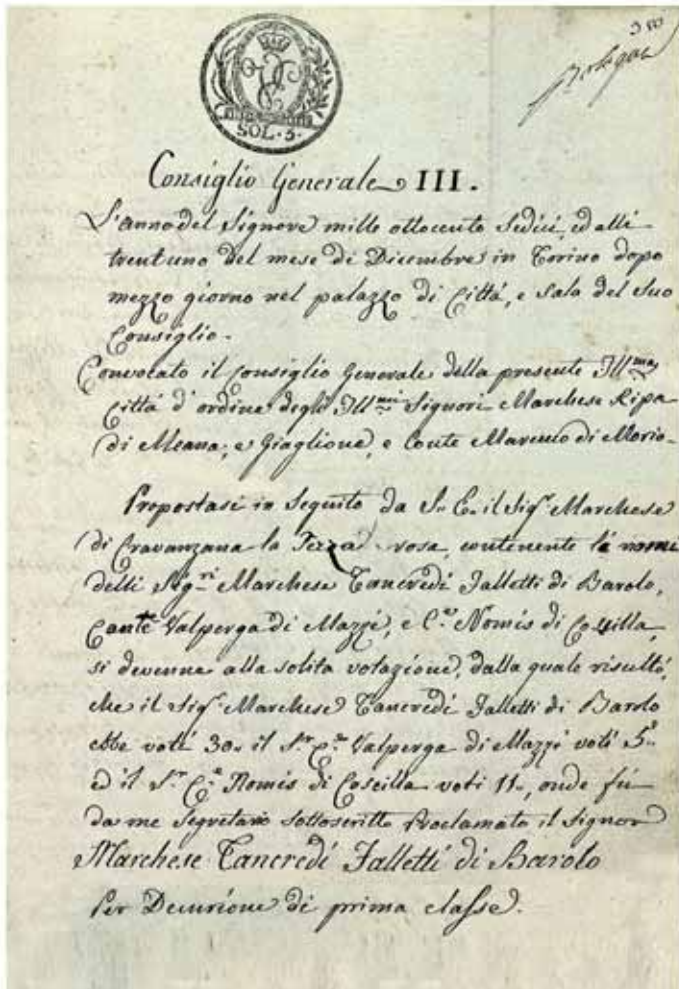 SOL. 3.
Consiglio Generale III.
L'anno del Signore mille ottocento Sedici, ed alli
trentuno del mese di Dicembre in Torino dopo
mezzo giorno nel palazzo di Città, e Sala del Suo
Consiglio.
Convocato il Consiglio Generale della presente Ill.ma
Città d'ordine degli Ill.mi Signori Marchese Ripa
di Meana, e Giaglione, e Conte Marenco di Morio-
Propostasi in Seguito da S. E. il Sig.r Marchese
di Cravanzana la Terza rosa, contenente li nomi
delli Sig.ri Marchese Tancredi Falletti di Barolo,
Conte Valperga di Mazzè, e C.te Nomis di Cossilla,
si devenne alla solita votazione, dalla quale risultò,
che il Sig.r Marchese Tancredi Falletti di Barolo
ebbe voti 30. il S.r C.te Valperga di Mazzè voti 5.
ed il S.r C.te Nomis di Coscilla voti 11., onde fù
da me Segretario sottoscritto Proclamato il Signor
Marchese Tancredi Falletti di Barolo
Per Decurione di prima classe.